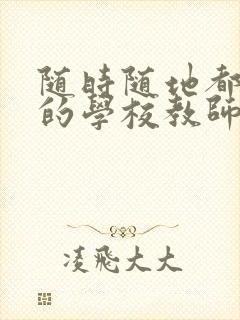 随時随地都
的學校教師
凌飛大大